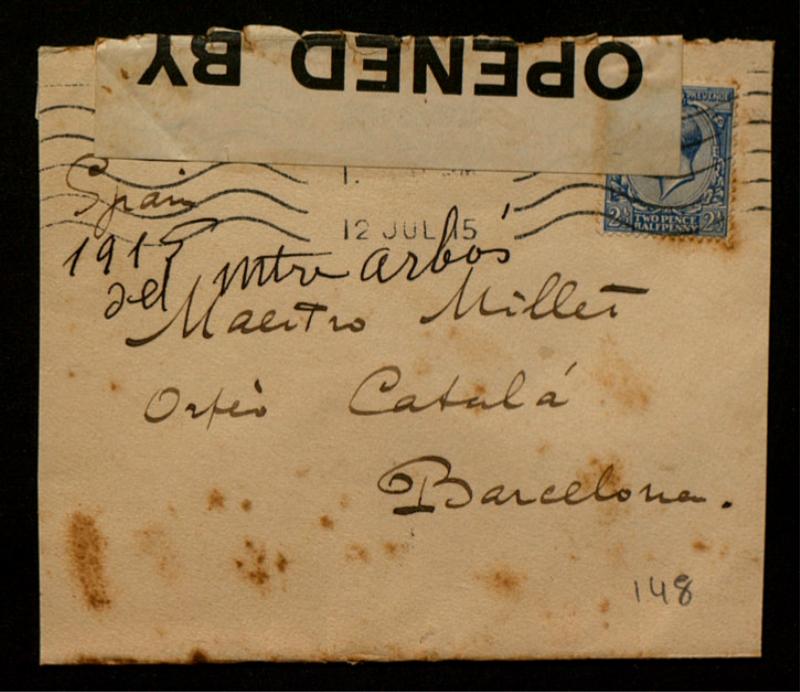 OPENED BY
REVENUE
Spain
12 JUL 15
2½ TWO PENCE 2½
HALFPENNY
1915
del Mtre Arbós
Maestro Millet
Orfeó Catalá
Barcelona.
148